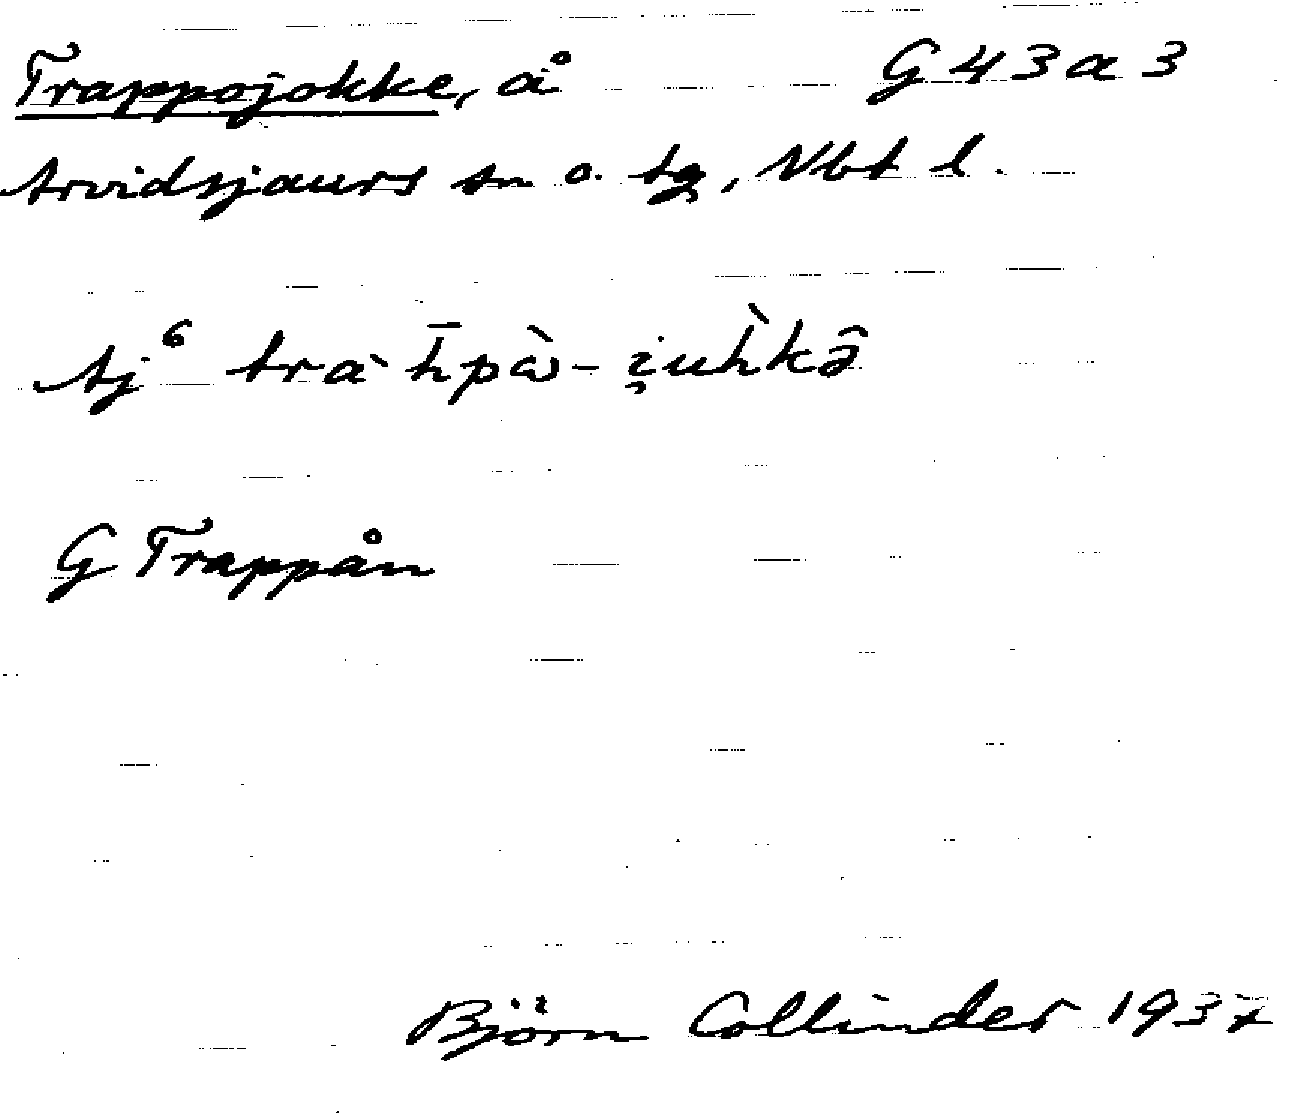 Trappojokke, å G 43 a 3
Arvidsjaurs sn o. tg, Vbt l.
Aj⁶ tràh̄pὼ-i̯uh̀kə̂
G Trappån
Björn Collinder 1937